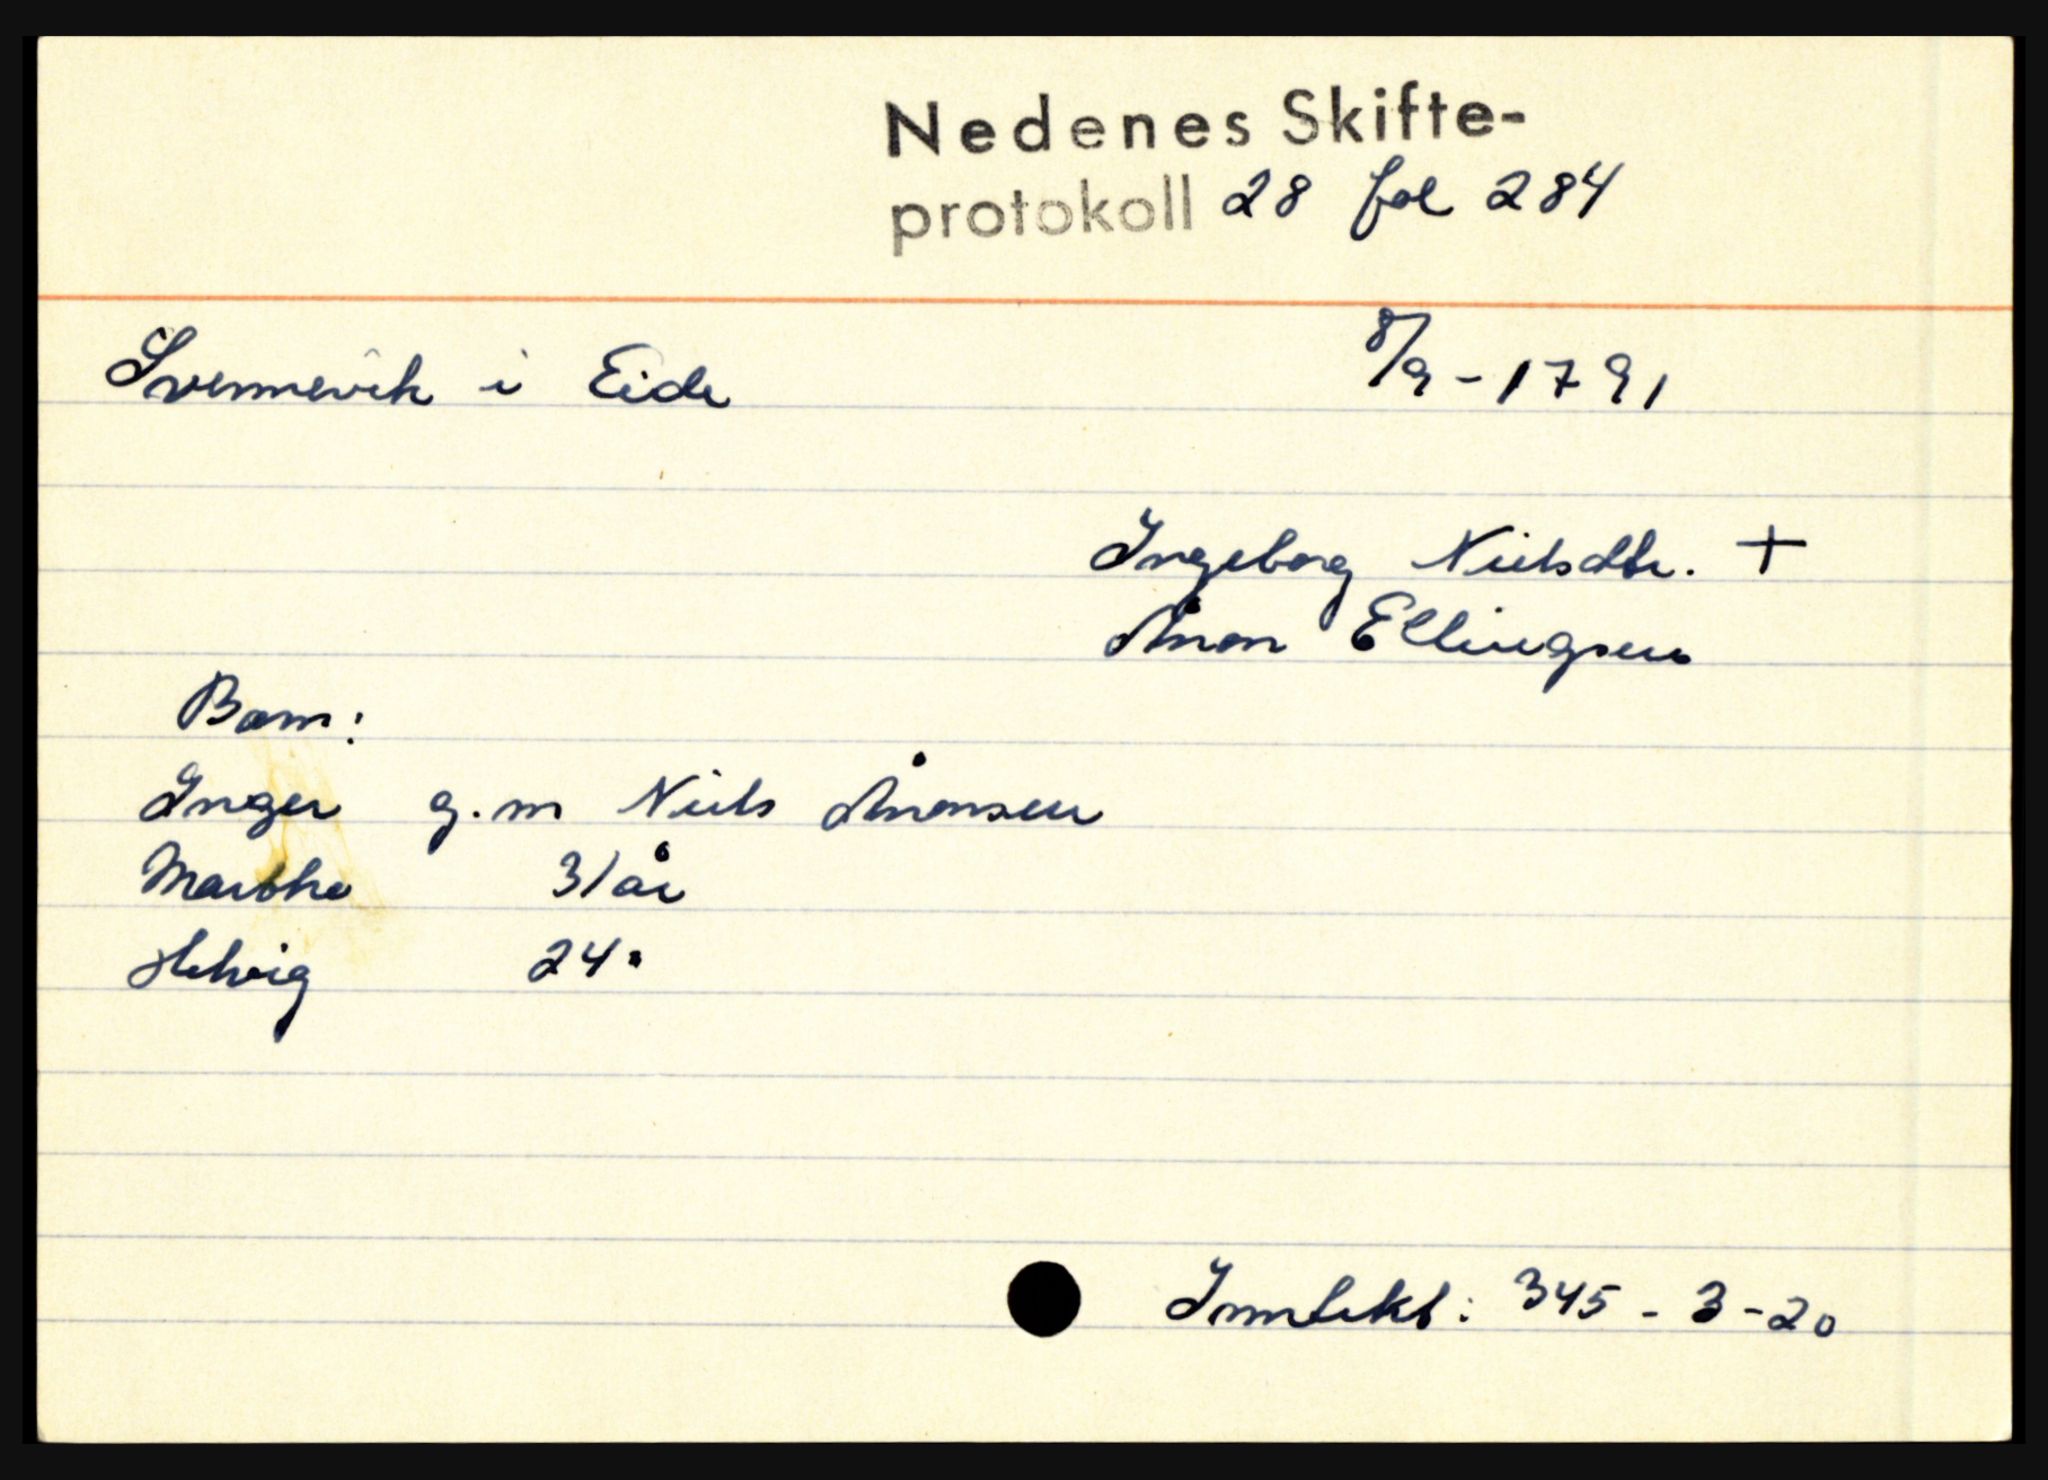 Nedenes Skifte-
protokoll 28 fol 284
Svennevik i Eide 8/9-1791
Ingeborg Nielsdtr. +
Ånon Ellingsen
Barn:
Inger g.m Niels Ånonsen
Marthe 31 år
Helvig 24 "
Inntekt: 345-3-20